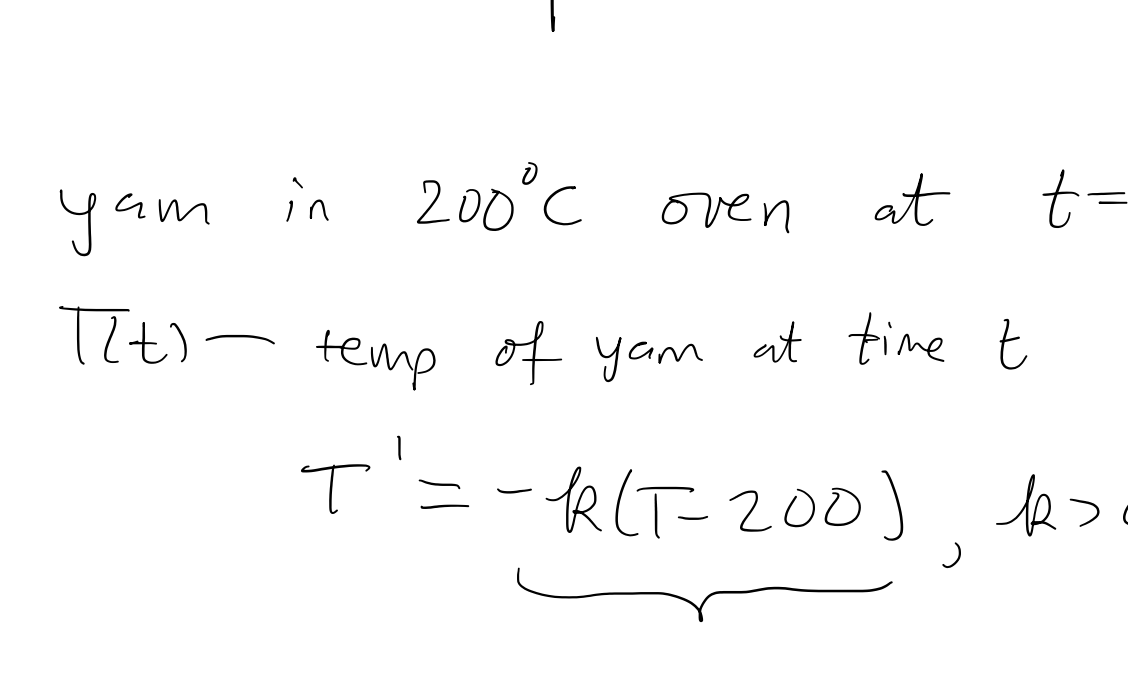 yam in 200°C oven at t=
T(t) — temp of yam at time t
T' = -k(T-200), k>